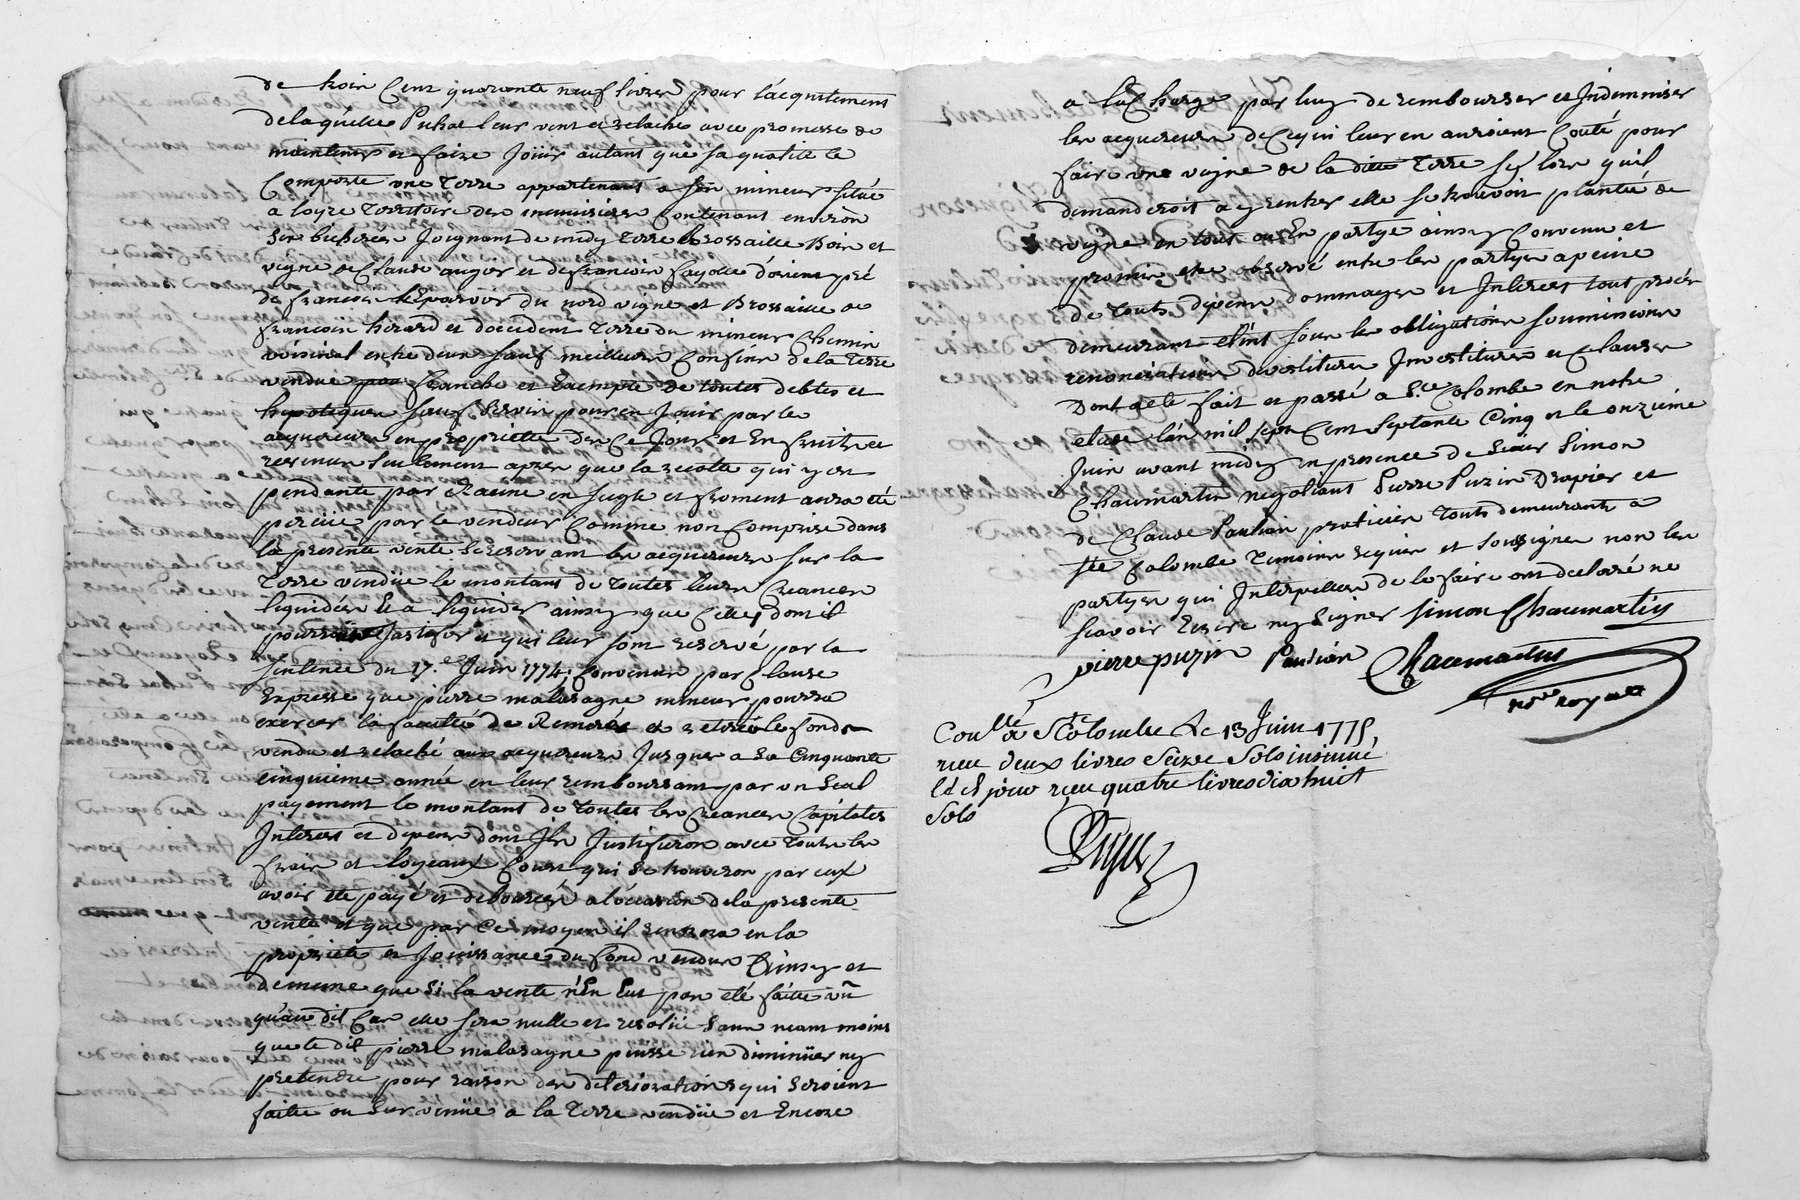 de trois Cent quarante neuf livres pour l'acquitement
de laquelle Puhat leur vent et relache avec promesse de
maintenir et faire Joüir autant que sa qualité le
Comporte une Terre appartenant a son mineur située
a loyre Territoire des Contenant environ
six bicherées Joignant de midy Terre Brossaille Bois et
vigne de Claude augier et de francois fayolle d'orient pré
de francois du nord vigne et Brossaille de
francois herard et d'occident Terre du mineur Chemin
voisinal entre deux sauf meilleurs Confins de la Terre
vendue franche et Exempte de toutes debtes et
hipoteques sauf servis pour en Jouir par les
acquereurs en proprietté des Ce Jour et En fruits et
revenus seulement apres que la recolte qui y est
pendante par Racine en seigle et froment aura été
percüe par le vendeur Comme non Comprise dans
la presente vente se reservant les acquereurs sur la
Terre vendüe le montant de toutes leurs Creances
liquidées Et a liquider ainsy que Celles dont il
Justifier et qui leur sont reservé par la
sentence du 17.e Juin 1774, Convenu par Clause
Expresse que pierre malasagne mineur pourra
exercer la faculté de Remeré et retrait le fonds
vendu et relaché aux acquereurs Jusques a sa Cinquante
cinquieme année en leur remboursant par un seul
payement le montant de toutes les Creances Capitales
Interets et depens dont Ils Justifieront avec toutes les
frais et loyeaux Couts qui se trouveront par eux
avoir été payé et deboursés a l'ocasion de la presente
vente et que par Ce moyen il rentrera en la
proprieté et Jouissance du fond vendu Ainsy et
de meme que si la vente n'En Eut pas été faitte
qu'audit Cas elle sera nulle et resoliée sans neantmoins
que le dit pierre malasagne puisse rien diminüer ny
pretendre pour raison des deteriorations qui seroient
faitte ou survenüe a la Terre vendüe et Encore
a la Charge par luy de rembourser et Indemniser
les acquereurs de Ce qui leur en auroient Couté pour
faire une vigne de la ditte Terre sy lors qu'il
demanderoit a y rentrer elle se trouvoit plantée de
vigne en tout ou En partye ainsy Convenu et
promis etre observé entre les partyes a peine
de touts depens dommages et Interets tout procés
demeurant etint sous les obligations soumissions
renonciations devestitures Investitures et Clauses
Dont acte fait et passé a Ste Colombe en notre
etude l'an mil sept Cent septante Cinq et le onzieme
Juin avant midy en presence de sieur Simon
Chaumartin negotiant Pierre Puzin Drapier et
de Claude Paulian praticien touts demeurants a
ste Colombe temoins requis et soussignés non les
partyes qui Interpellées de le faire ont declaré ne
scavoir Ecrire ny signer Simon Chaumartin
pierre puzin Paulian Chaumartin
nore royal
Conlé a Ste Colombe Le 13 Juin 1775,
reçu deux livres seize sols insinué
led jour reçu quatre livres dix huit
sols